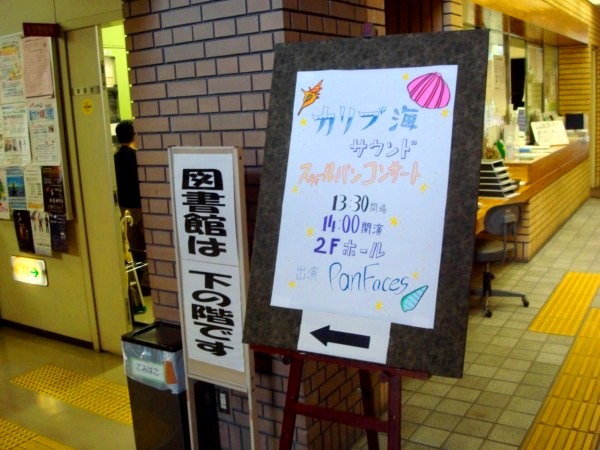 図書館は
下の階です
カリブ海
サウンド
スティールパンコンサート
13:30開場
14:00開演
2Fホール
出演 PanFaces
ごみばこ